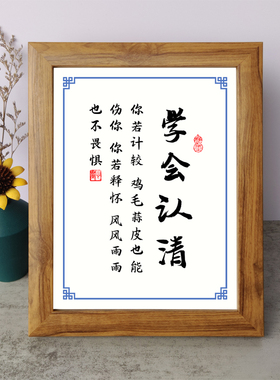 学会认清
你若计较 鸡毛蒜皮也能
伤你 你若释怀 风风雨雨
也不畏惧